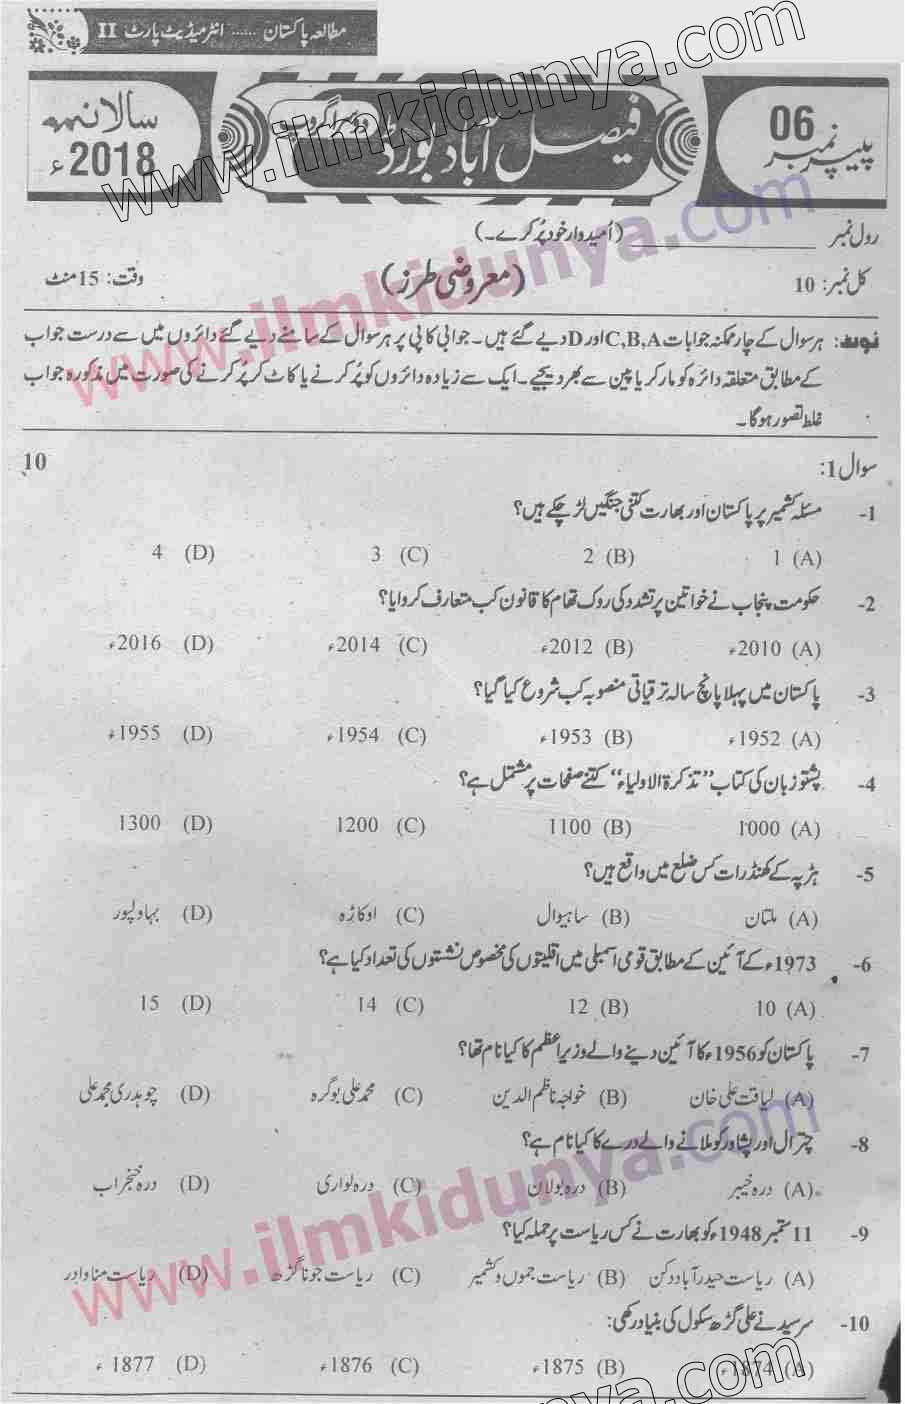 مطالعہ پاکستان ...... انٹرمیڈیٹ پارٹ II
www.ilmkidunya.com
پیپر نمبر 06
فیصل آباد بورڈ
دوسرا گروپ
سالانہ 2018ء
رول نمبر ____________ (اُمیدوار خود پُر کرے۔)
کل نمبر: 10 (معروضی طرز) وقت: 15 منٹ
www.ilmkidunya.com
نوٹ: ہر سوال کے چار ممکنہ جوابات C,B,A اور D دیے گئے ہیں۔ جوابی کاپی پر ہر سوال کے سامنے دیے گئے دائروں میں سے درست جواب
کے مطابق متعلقہ دائرہ کو مارکر یا پین سے بھر دیجیے۔ ایک سے زیادہ دائروں کو پُر کرنے یا کاٹ کر پُر کرنے کی صورت میں مذکورہ جواب
غلط تصور ہوگا۔
سوال 1: 10
1- مسئلہ کشمیر پر پاکستان اور بھارت کتنی جنگیں لڑ چکے ہیں؟
(A) 1 (B) 2 (C) 3 (D) 4
2- حکومت پنجاب نے خواتین پر تشدد کی روک تھام کا قانون کب متعارف کروایا؟
(A) 2010ء (B) 2012ء (C) 2014ء (D) 2016ء
3- پاکستان میں پہلا پانچ سالہ ترقیاتی منصوبہ کب شروع کیا گیا؟
(A) 1952ء (B) 1953ء (C) 1954ء (D) 1955ء
4- پشتو زبان کی کتاب "تذکرۃ الاولیاء" کتنے صفحات پر مشتمل ہے؟
(A) 1000 (B) 1100 (C) 1200 (D) 1300
5- ہڑپہ کے کھنڈرات کس ضلع میں واقع ہیں؟
(A) ملتان (B) ساہیوال (C) اوکاڑہ (D) بہاولپور
6- 1973ء کے آئین کے مطابق قومی اسمبلی میں اقلیتوں کی مخصوص نشستوں کی تعداد کیا ہے؟
(A) 10 (B) 12 (C) 14 (D) 15
7- پاکستان کو 1956ء کا آئین دینے والے وزیراعظم کا کیا نام تھا؟
(A) لیاقت علی خان (B) خواجہ ناظم الدین (C) محمد علی بوگرہ (D) چوہدری محمد علی
8- چترال اور پشاور کو ملانے والے درے کا کیا نام ہے؟
(A) درہ خیبر (B) درہ بولان (C) درہ لواری (D) درہ خنجراب
www.ilmkidunya.com
9- 11 ستمبر 1948ء کو بھارت نے کس ریاست پر حملہ کیا؟
(A) ریاست حیدرآباد دکن (B) ریاست جموں و کشمیر (C) ریاست جوناگڑھ (D) ریاست مناوادر
10- سرسید نے علی گڑھ سکول کی بنیاد رکھی:
(A) 1874ء (B) 1875ء (C) 1876ء (D) 1877ء